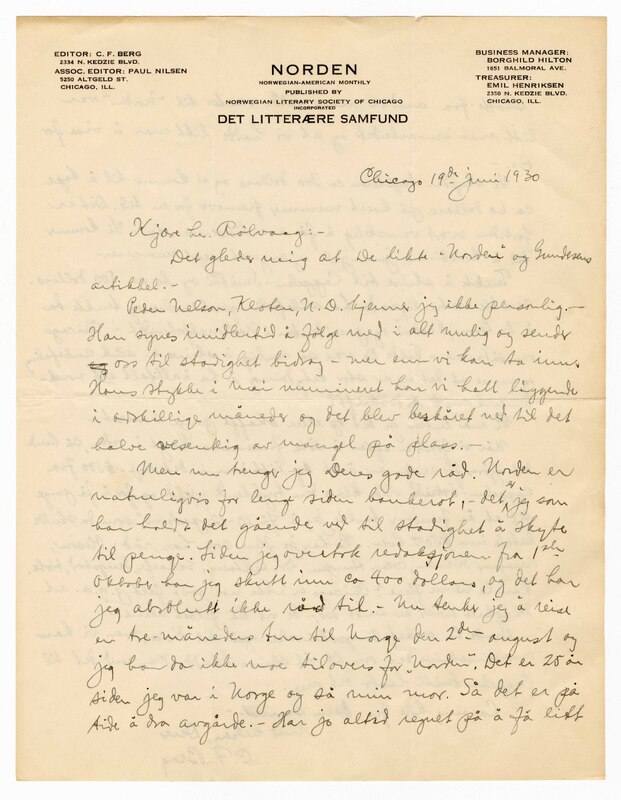 EDITOR: C. F. BERG
2334 N. KEDZIE BLVD.
ASSOC. EDITOR: PAUL NILSEN
5250 ALTGELD ST.
CHICAGO, ILL.
NORDEN
NORWEGIAN-AMERICAN MONTHLY
PUBLISHED BY
NORWEGIAN LITERARY SOCIETY OF CHICAGO
INCORPORATED
DET LITTERÆRE SAMFUND
BUSINESS MANAGER:
BORGHILD HILTON
1651 BALMORAL AVE.
TREASURER:
EMIL HENRIKSEN
2350 N. KEDZIE BLVD.
CHICAGO, ILL.
Chicago 19de juni 1930
Kjære hr. Rölvaag:-
Det gleder mig at De likte "Norden" og Gundesens
artikkel.-
Peder Nelson, Kloten, N. D. kjenner jeg ikke personlig.-
Han synes imidlertid å følge med i alt mulig og sender
oss til stadighet bidrag - mer enn vi kan ta inn.
Hans stykke i mai nummeret har vi hatt liggende
i adskillige måneder og det blev beskåret ned til det
halve vesentlig av mangel på plass.-
Men nu trenger jeg Deres gode råd. Norden er
naturligvis for lenge siden bankerot,- det er jeg som
har holdt det gående ved til stadighet å skyte
til penge. Siden jeg overtok redaksjonen fra 1ste
oktober har jeg skutt inn ca 400 dollars, og det har
jeg absolutt ikke råd til.- Nu tenker jeg å reise
en tre-måneders tur til Norge den 2den august og
jeg har da ikke noe tilovers for "Norden". Det er 25 år
siden jeg var i Norge og så min mor. Så det er på
tide å dra avgårde.- Har jo altid regnet på å få litt
C F Berg